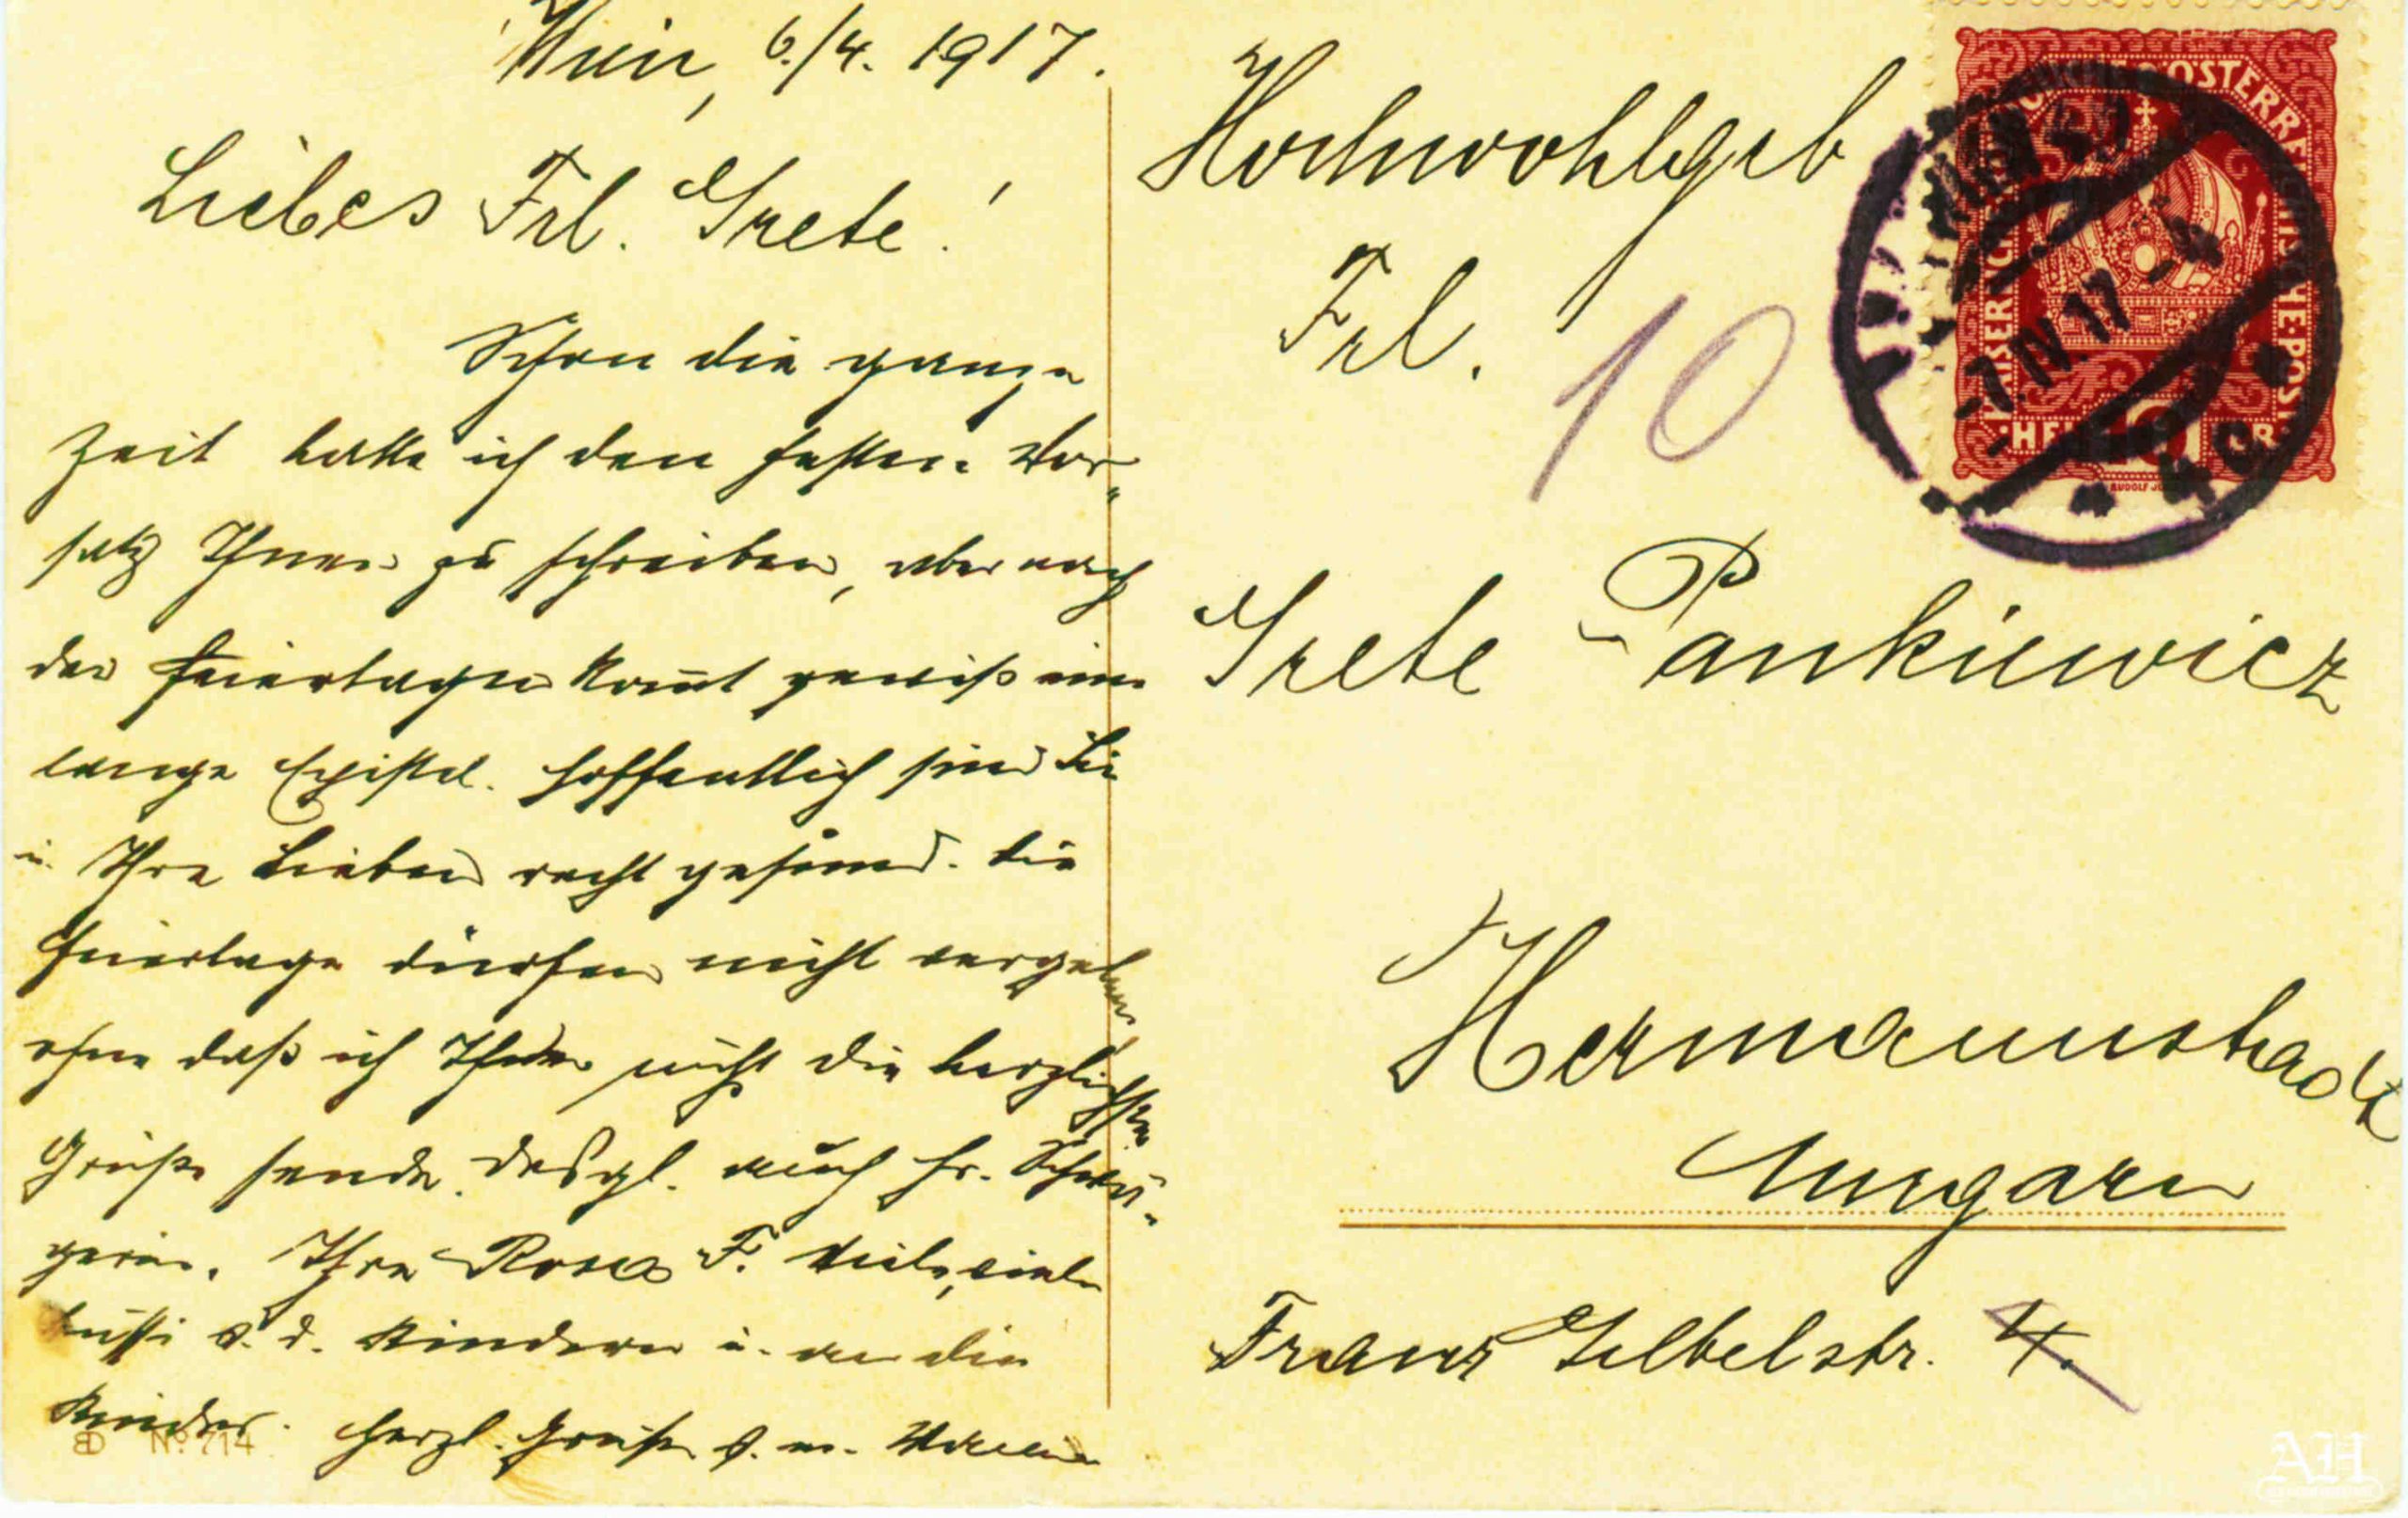 Wien, 6./4. 1917.
Liebes Frl. Grete!
Schon die ganze
Zeit hatte ich den festen Vor-
satz Ihnen zu schreiben, aber nach
den Feiertagen komt gewiß eine
lange Epistel. Hoffentlich sind Sie
u. Ihre Lieben recht gesund. Die
Feiertage dürfen nicht vergehen
ohne daß ich Ihnen nicht die herzlichsten
Grüße sende. Desgl. auch Fr. Schwä-
gerin. Ihre Rosa F. Viele, viele
Bussi v. d. Kindern u. an die
Kinder. Herzl. Grüße v. m.
BD No 714
Hochwohlgeb
Frl.
10
Grete Pankiewicz
Hermannstadt
Ungarn
Franz Gebbelstr. 4.
KAISERLICHE KÖNIGLICHE ÖSTERREICHISCHE POST
HELLER 10
RUDOLF
-7.IV.17.-4
40
AH